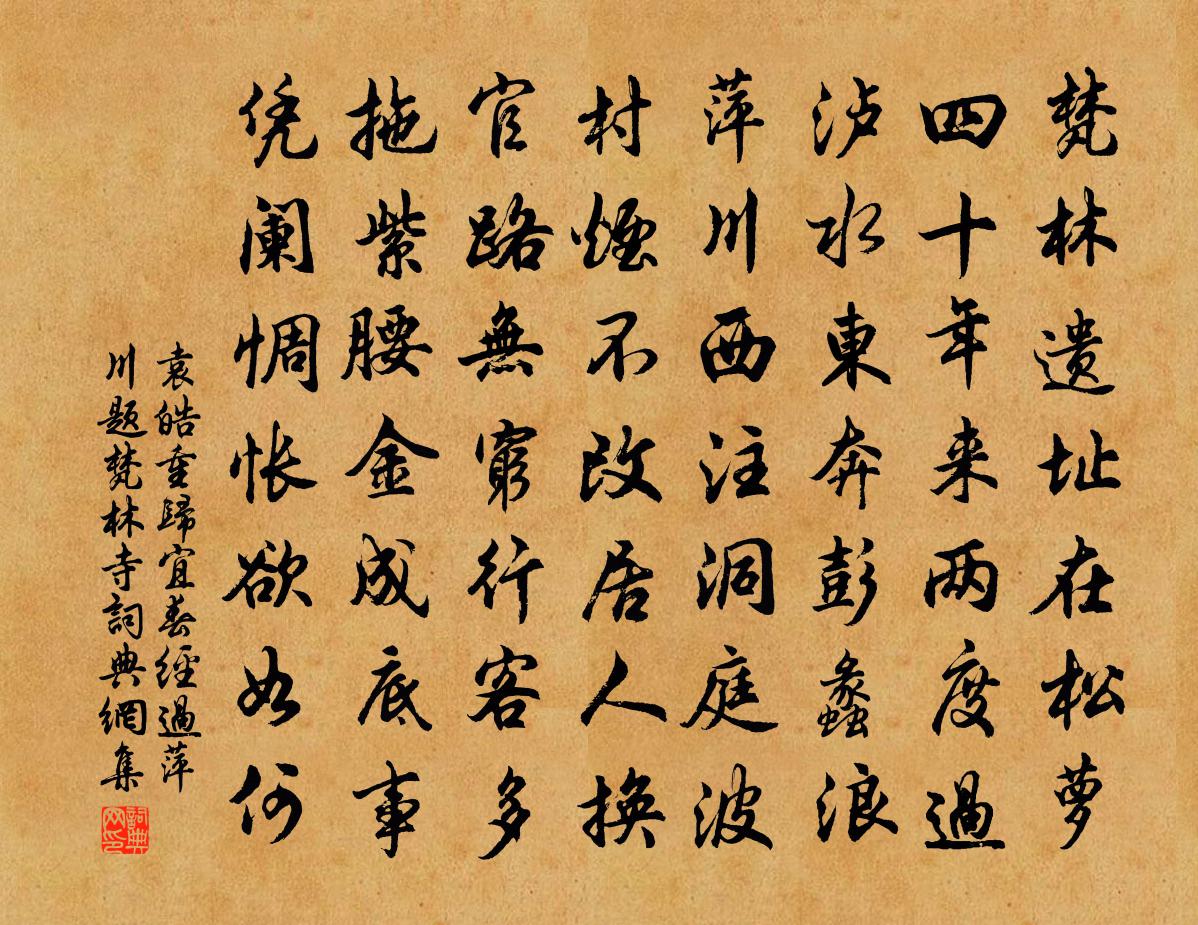 梵林遗址在松萝
四十年来两度過
泸水東奔彭蠡浪
萍川西注洞庭波
村煙不改居人換
官路無窮行客多
拖紫腰金成底事
凭阑惆怅欲如何
袁皓重歸宜春經過萍
川题梵林寺詞典網集
詞典网印